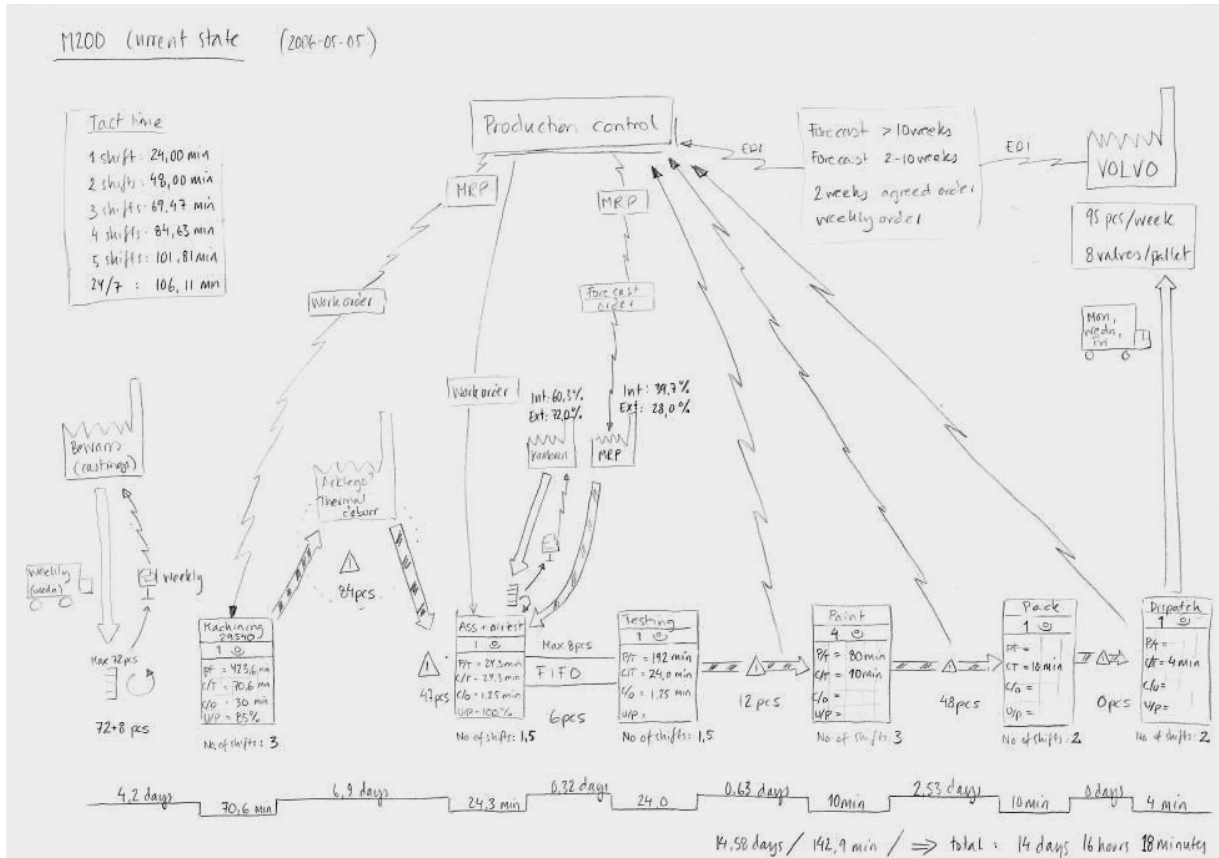 M200 Current state (2006-05-05)
Tact time
1 shift: 24,00 min
2 shifts: 48,00 min
3 shifts: 69,47 min
4 shifts: 84,63 min
5 shifts: 101,81 min
24/7 : 106,11 min
Production control
EDI
Forecast >10 weeks
Forecast 2-10 weeks
2 weeks agreed order
weekly order
EDI
VOLVO
95 pcs/week
8 valves/pallet
Mon,
wedn,
Fri
MRP
MRP
Work order
Forecast
order
Work order
Int: 60,3%
Ext: 72,0%
Int: 39,7%
Ext: 28,0%
Kanban
MRP
(castings)
Thermal
deburr
84pcs
Weekly
(wedn)
Weekly
Max 72 pcs
72+8 pcs
Machining
29540
1
P/T = 423,6 min
C/T = 70,6 min
C/O = 30 min
U/P = 85%
No. of shifts: 3
47pcs
1
P/T = 24,3min
C/T = 24,3min
C/O = 1,25 min
U/P = 100%
No of shifts: 1,5
Max 8pcs
FIFO
6pcs
Testing
1
P/T = 192 min
C/T = 24,0 min
C/O = 1,25 min
U/P =
No. of shifts: 1,5
12 pcs
Paint
4
P/T = 80min
C/T = 10min
C/O =
U/P =
No. of shifts: 3
48pcs
Pack
1
P/T =
C/O =
U/P =
No of shifts: 2
0pcs
Dispatch
1
P/T =
C/T = 4 min
C/O =
U/P =
No of shifts: 2
4,2 days
70,6 min
6,9 days
24,3 min
0,32 days
24,0
0,63 days
10min
2,53 days
10min
0 days
4 min
14,58 days / 142,9 min / ⇒ total : 14 days 16 hours 18 minutes